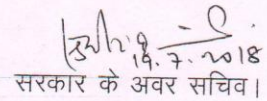 19.7.2018
सरकार के अवर सचिव।